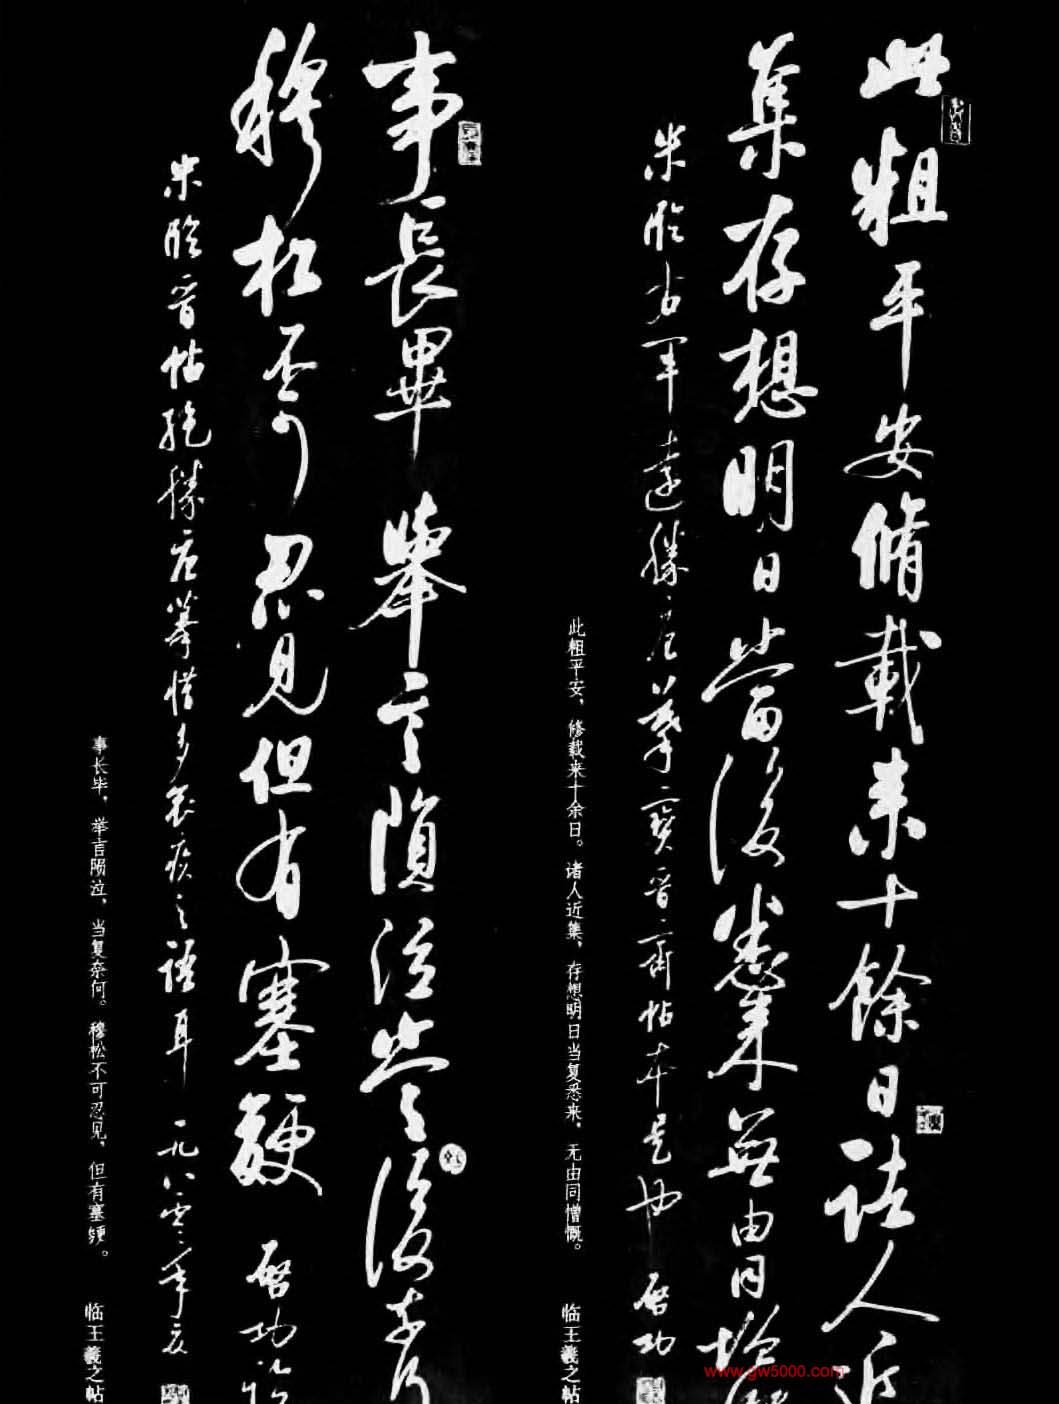 此粗平安脩載来十餘日諸人近
集存想明日當復悉来無由同增慨
米臨右軍遠勝唐摹寶晋齋帖本是也 启功
此粗平安，修载来十余日。诸人近集，存想明日当复悉来，无由同憎慨。 临王羲之帖
事長畢舉言隕泣當復奈何
穆松不可忍見但有塞鯁 启功临
米臨晋帖絶勝唐摹惜多哀疾之語耳 一九八零年夏
事长毕，举言陨泣，当复奈何。穆松不可忍见，但有塞鲠。 临王羲之帖
www.gw5000.com